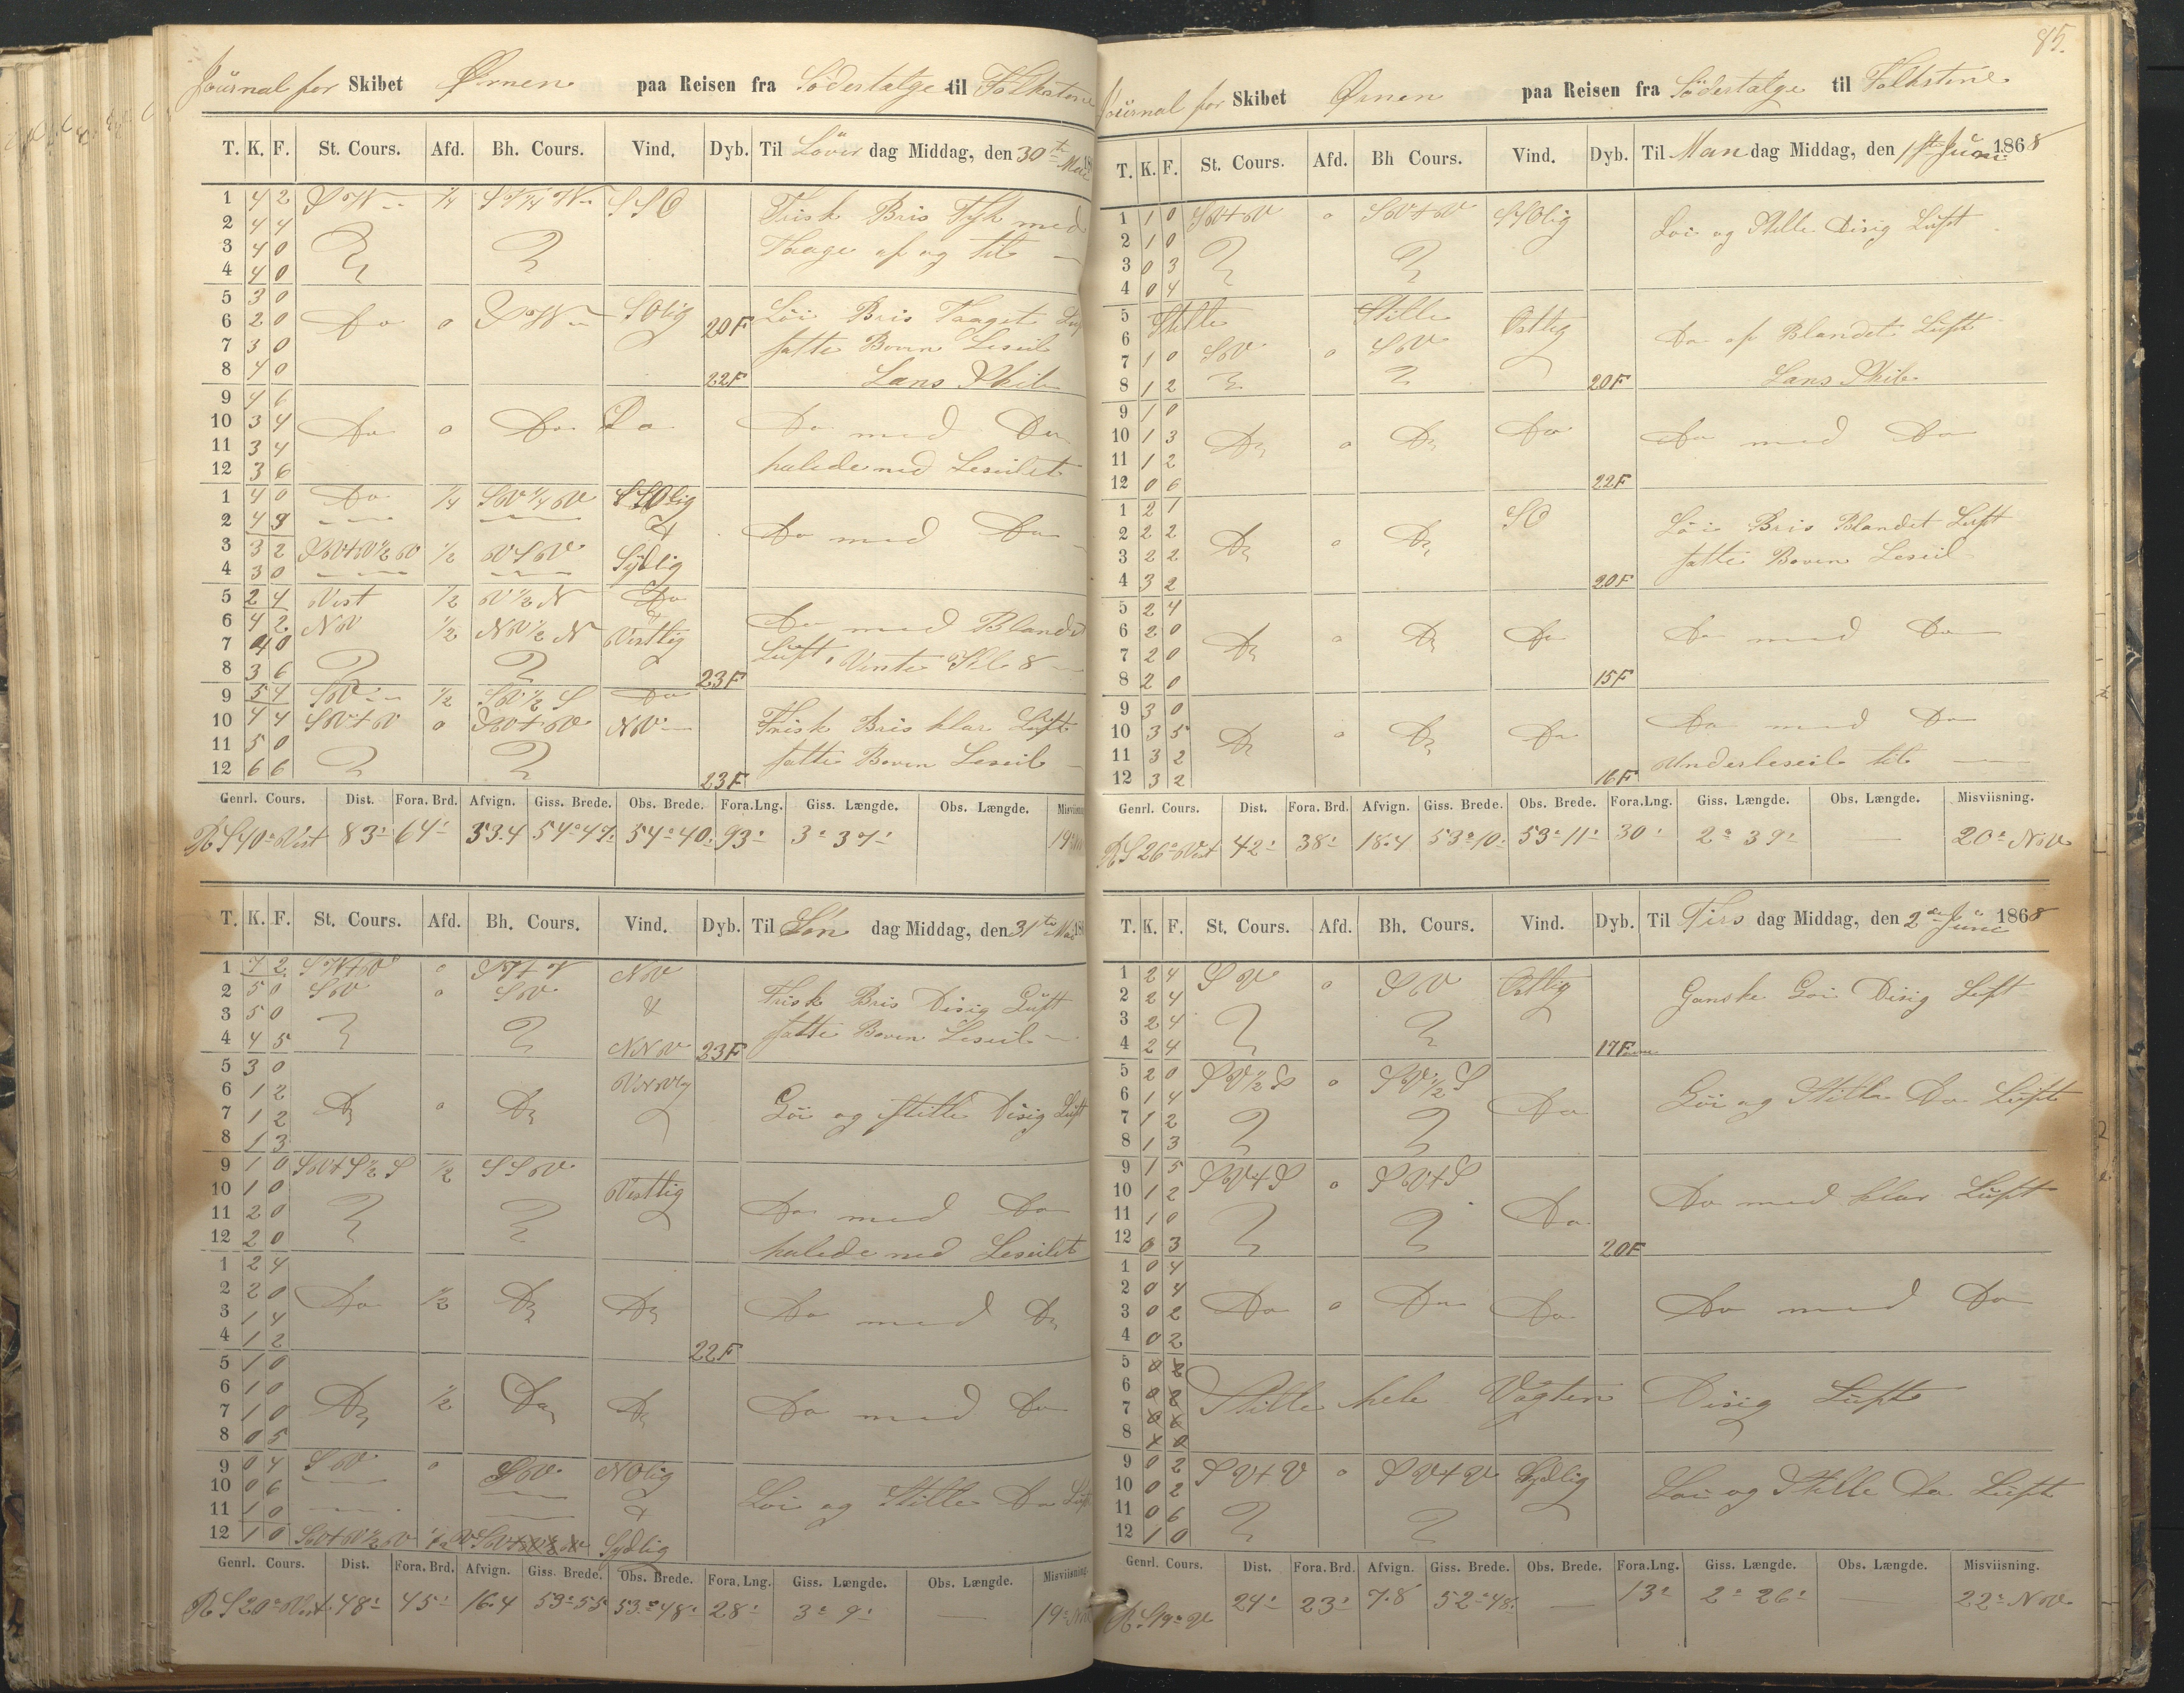 Journal for Skibet Ørnen paa Reisen fra Södertalge til Folkstone
T. K. F. St. Cours. Afd. Bh. Cours. Vind. Dyb. Til Löver dag Middag, den 30te Mai 18
1 4 2 1/4 SSO Frisk Bris Tyk med
2 4 4
3 4 0 Taage af og til
4 4 0
5 3 0
6 2 0 Do 0 SOlig 20F Löi Bris Taaget Luft
7 3 0 satte Boven Leseil
8 4 0 22F Lens Skib
9 4 6
10 3 4 Do 0 Do Do Do med Do
11 3 4
12 3 6 halede ned Leseilet
1 4 0 Do 1/4 SW 1/4 W SSOlig
2 4 3 Do med Do
3 3 2 SW+W 1/2 W 1/2 WSW Sydlig
4 3 0
5 2 4 Vest 1/2 W 1/2 N Do
6 4 2 NW 1/2 NW 1/2 N Vestlig Do med Blandet
7 4 0 Luft, Vente Kl 8
8 3 6 23F
9 5 4 SW 1/2 SW 1/2 S Do
10 4 4 SW+W 0 SW+W NW Frisk Bris klar Luft
11 5 0 satte Boven Leseil
12 6 6 23F
Genrl. Cours. Dist. Fora. Brd. Afvign. Giss. Brede. Obs. Brede. Fora.Lng. Giss. Længde. Obs. Længde. Misviisning.
R S 40° Vest 83' 64' 53.4 54° 47' 54° 40' 93' 3° 37' 19°
T. K. F. St. Cours. Afd. Bh. Cours. Vind. Dyb. Til Søn dag Middag, den 31te Mai 18
1 7 2 SW+W 0 SW+W NW
2 5 0 SW 0 SW & Frisk Bris Disig Luft
3 5 0 satte Boven Leseil
4 4 5 NNW 23F
5 3 0
6 1 2 Do 0 Do Löi og stille Disig Luft
7 1 2
8 1 3
9 1 0 SW+S 1/2 S 1/2 SSW
10 1 0 Vestlig
11 2 0 Do med Do
12 2 0 halede ned Leseilet
1 2 4
2 2 0 Do 1/2 Do Do Do med Do
3 1 4
4 1 2 22F
5 1 0
6 1 0 Do 1/2 Do Do Do med Do
7 1 0
8 0 5
9 0 4 SW 0 SW NOlig
10 0 6 Löi og Stille Do Luft
11 1 0 &
12 1 0 SW+W 1/2 W Sydlig
Genrl. Cours. Dist. Fora. Brd. Afvign. Giss. Brede. Obs. Brede. Fora. Lng. Giss. Længde. Obs. Længde. Misviisning.
R S 20° Vest 48' 45' 16.4 53° 55 53° 48' 28' 3° 9' — 19°
85.
Journal for Skibet Ørnen paa Reisen fra Södertalge til Folkstone
T. K. F. St. Cours. Afd. Bh Cours. Vind. Dyb. Til Man dag Middag, den 1ste Juni 1868
1 1 0 SW+W 0 SW+W SSOlig Löi og Stille Disig Luft
2 1 0
3 0 3
4 0 4
5 Stille Stille Ostlig
6 Do af Blandet Luft
7 1 0 SW 0 SW
8 1 2 20F Lens Skib
9 1 0
10 1 3 Do 0 Do Do Do med Do
11 1 2
12 0 6 22F
1 2 1 SO Löi Bris Blandet Luft
2 2 2 Do 0 Do
3 2 2 satte Boven Leseil
4 3 2 20F
5 2 4
6 2 0 Do 0 Do Do Do med Do
7 2 0
8 2 0 15F
9 3 0
10 3 5 Do 0 Do Do Do med Do
11 3 2 Underleseil til
12 3 2 16F
Genrl. Cours. Dist. Fora. Brd. Afvign. Giss. Brede. Obs. Brede. Fora.Lng. Giss. Længde. Obs. Længde. Misviisning.
R S 26° Vest 42' 38' 18.4 53° 10' 53° 11' 30' 2° 39' — 20° NW
T. K. F. St. Cours. Afd. Bh. Cours. Vind. Dyb. Til Tirs dag Middag, den 2den Juni 1868
1 2 4 SW 0 SW Ostlig Ganske Löi Disig Luft
2 2 4
3 2 4
4 2 4 17F
5 2 0 SW 1/2 S 0 SW 1/2 S
6 1 4 Do Löi og Stille Do Luft
7 1 2
8 1 3
9 1 5 SW+S 0 SW+S
10 1 2 Do med klar Luft
11 1 0 Do
12 0 3 20F
1 0 4
2 0 4 Do 0 Do Do Do med Do
3 0 2
4 0 2
5
6 Stille hele Vagten Disig Luft
7
8
9 0 2 SW+W 0 SW+W Sydlig Löi og Stille Do Luft
10 0 2
11 0 6
12 1 0
Genrl. Cours. Dist. Fora. Brd. Afvign. Giss. Brede. Obs. Brede. Fora.Lng. Giss. Længde. Obs. Længde. Misviisning.
R. S 19° W 24' 23' 7.8 52° 48' — 13' 2° 26' — 22° NW